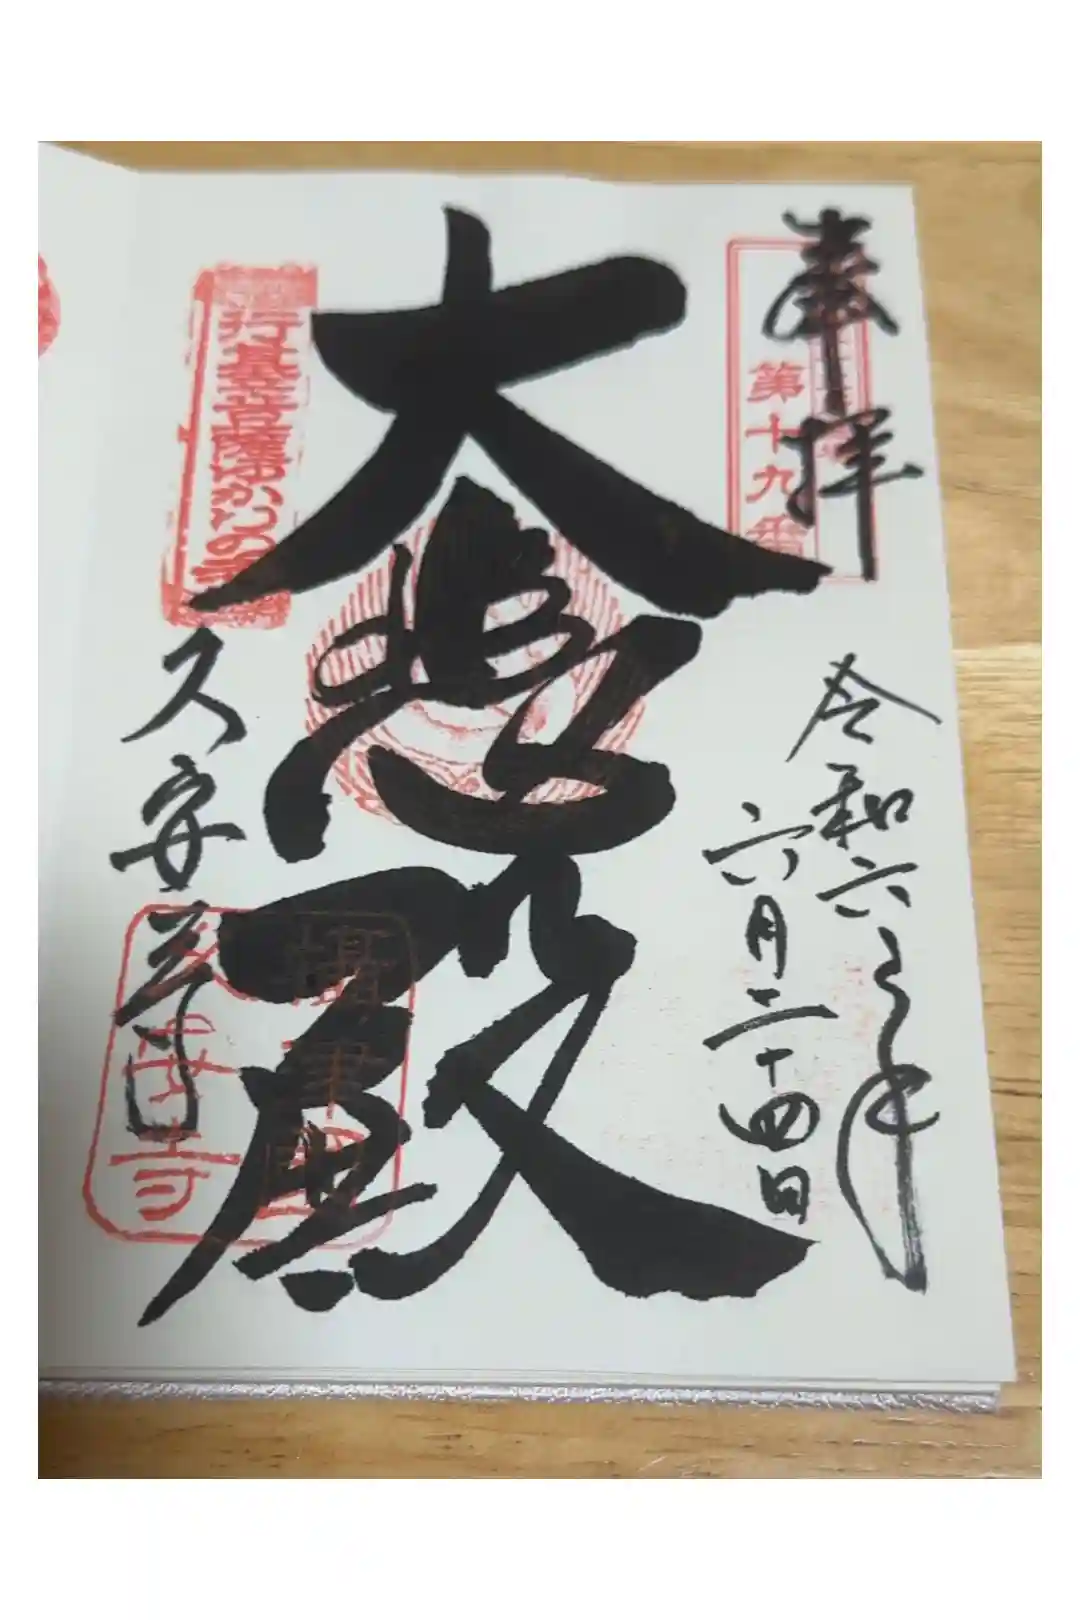 奉拝
第十九番
令和六年
六月二十四日
大悲殿
行基菩薩ゆかりの寺
久安寺
摂津国
久安寺